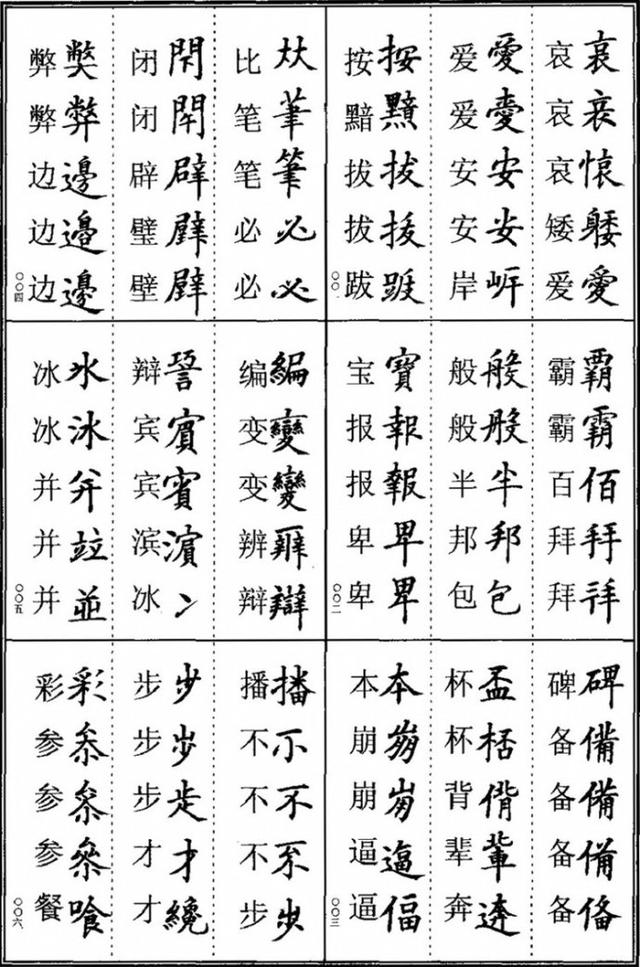 哀哀
哀
哀㤅
矮躷
爱愛
爱愛
爱
安安
安
岸㟁
按按
黯
拔拔
拔
跋
〇〇一
霸覇
霸霸
百佰
拜拜
拜
般般
般
半半
邦邦
包包
宝寶
报報
报報
卑卑
卑卑
〇〇二
碑碑
备備
备備
备俻
备
杯盃
杯桮
背偝
辈輩
奔逩
本本
崩崩
崩
逼逼
逼偪
〇〇三
比夶
笔茟
笔筆
必必
必必
闭閇
闭閉
辟辟
璧
壁
弊獘
弊弊
边邊
边邉
边邊
〇〇四
编編
变變
变變
辨
辩辯
辩
宾賔
宾賓
滨濵
冰冫
冰氷
冰冰
并并
并竝
并並
〇〇五
播播
不不
不不
不
步步
步歩
步步
步
才才
才纔
彩彩
参叅
参
参
餐喰
〇〇六